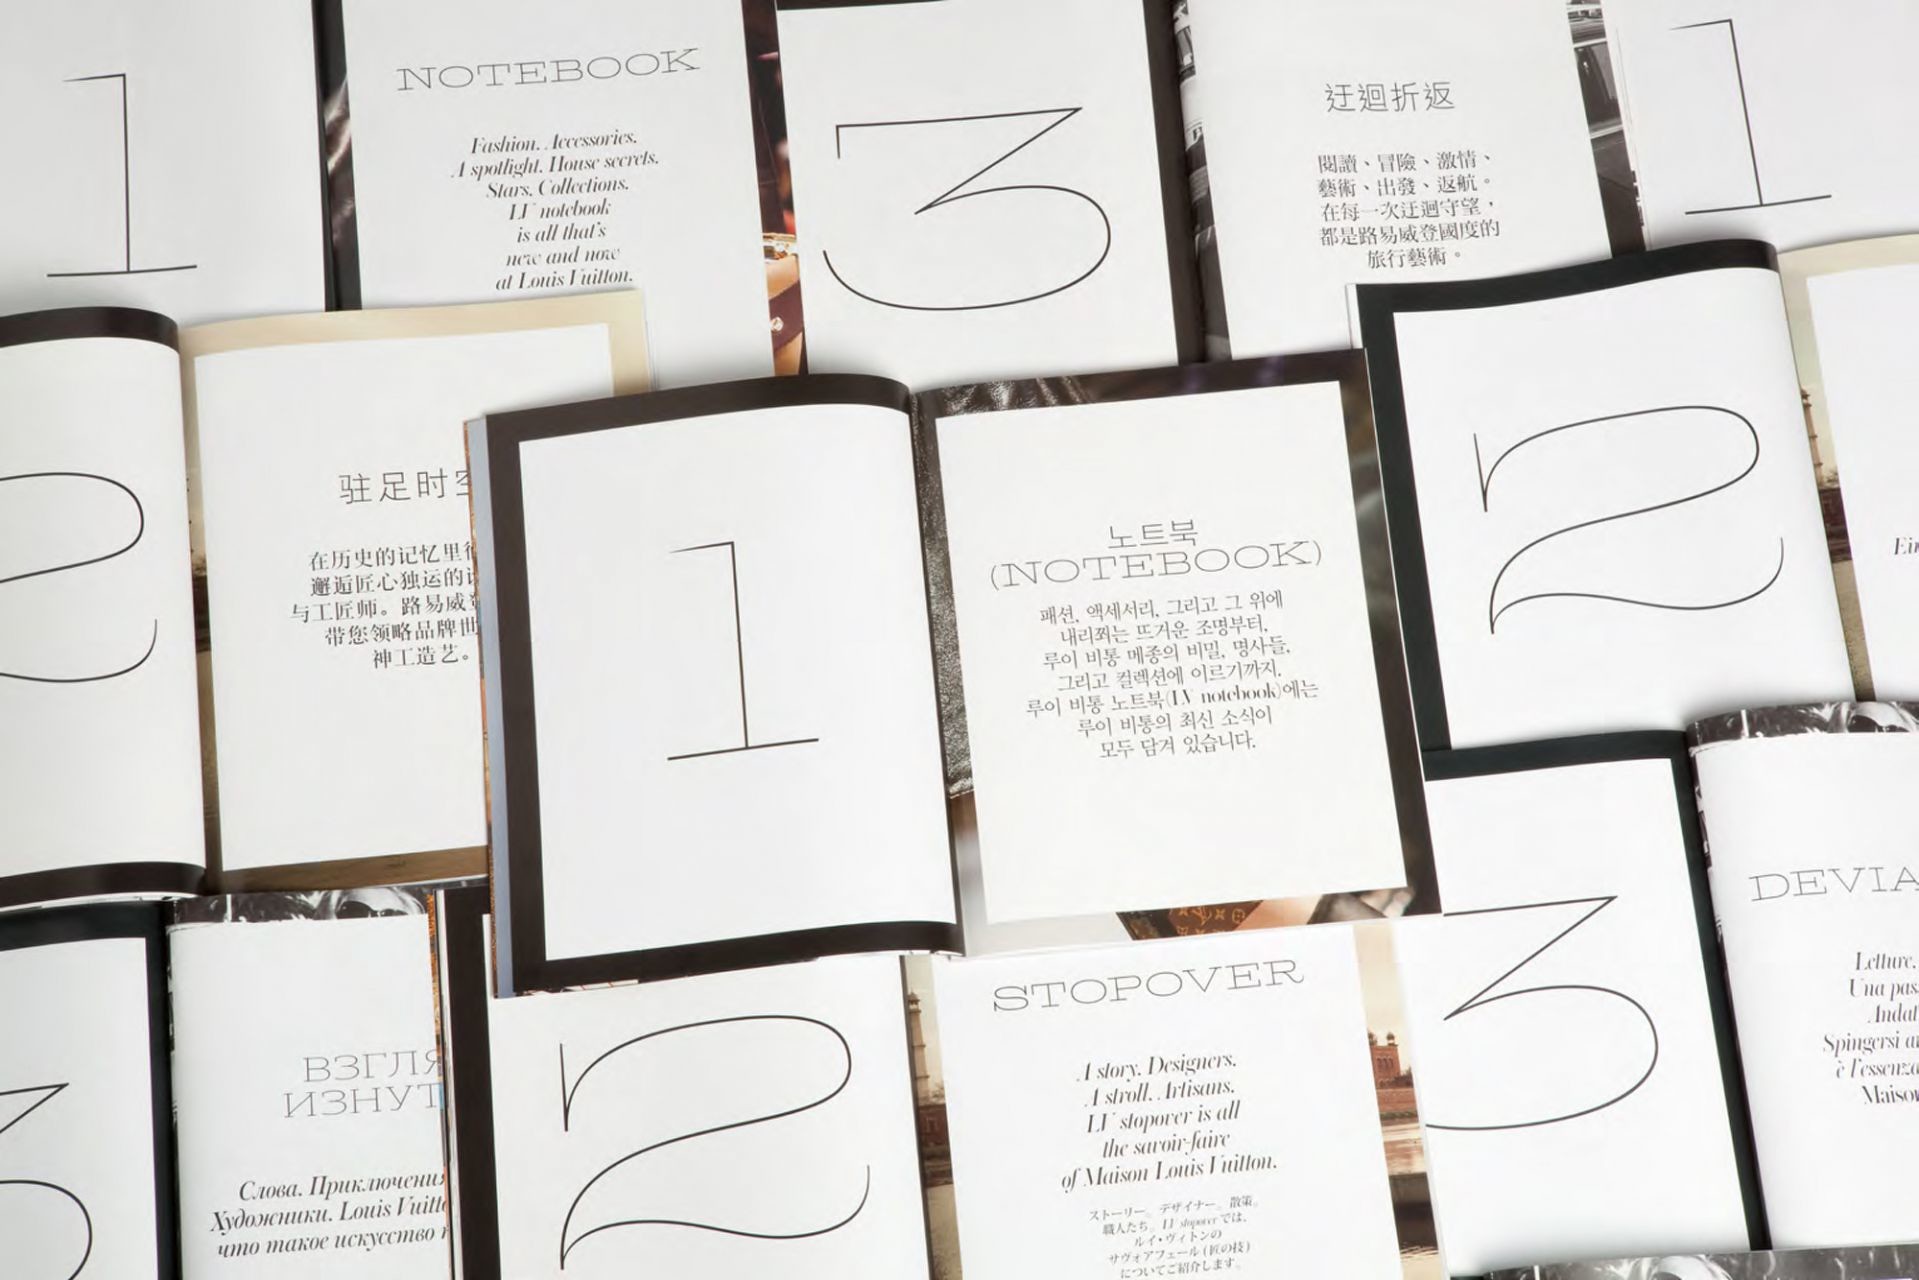 1
NOTEBOOK
Fashion. Accessories.
A spotlight. House secrets.
Stars. Collections.
LV notebook
is all that's
new and now
at Louis Vuitton.
3
迂迴折返
閱讀、冒險、激情、
藝術、出發、返航。
在每一次迂迴守望，
都是路易威登國度的
旅行藝術。
1
2
驻足时空
在历史的记忆里
邂逅匠心独运的
与工匠师。路易威
带您领略品牌世
神工造艺。
1
노트북
(NOTEBOOK)
패션, 액세서리, 그리고 그 위에
내리쬐는 뜨거운 조명부터,
루이 비통 메종의 비밀, 명사들,
그리고 컬렉션에 이르기까지.
루이 비통 노트북(LV notebook)에는
루이 비통의 최신 소식이
모두 담겨 있습니다.
2
3
ВЗГЛЯ
ИЗНУТ
Слова. Приключения
Художники. Louis Vuitto
что такое искусство
2
STOPOVER
A story. Designers.
A stroll. Artisans.
LV stopover is all
the savoir-faire
of Maison Louis Vuitton.
ストーリー。デザイナー。散策。
職人たち。LV stopoverでは、
ルイ・ヴィトンの
サヴォアフェール(匠の技)
についてご紹介します。
3
DEVIA
Letture.
Una pas
Andat
Spingersi
è l'essenza
Maison